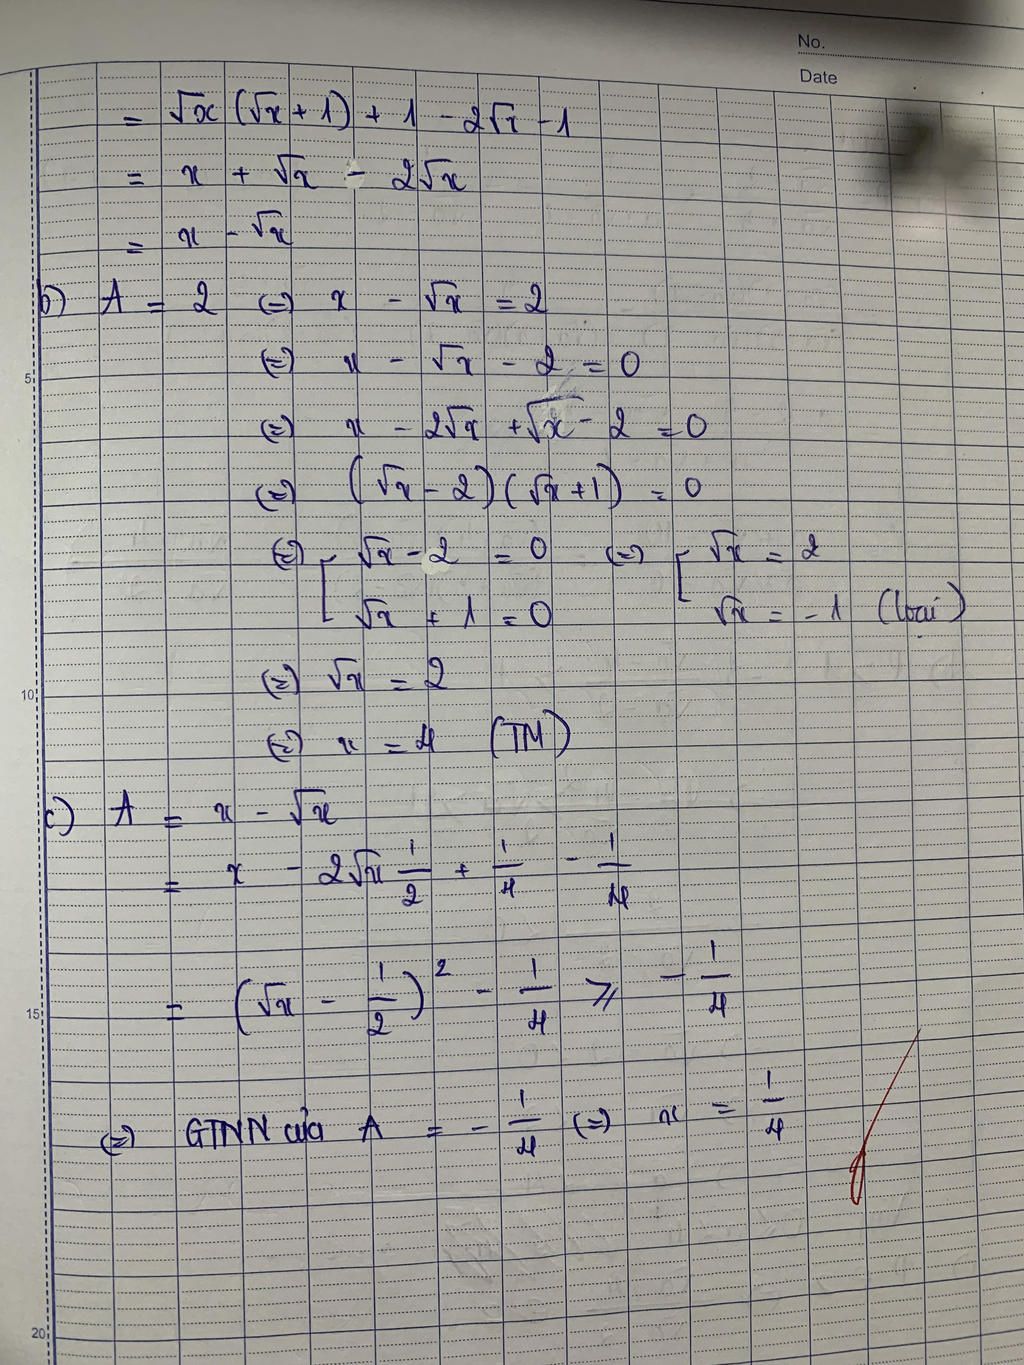 No.
Date
= √x (√x + 1) + 1 - 2√x - 1
= x + √x - 2√x
= x - √x
b) A = 2 (=) x - √x = 2
(=) x - √x - 2 = 0
5
(=) x - 2√x + √x - 2 = 0
(=) (√x - 2)(√x + 1) = 0
(=) [ √x - 2 = 0 (=) [ √x = 2
√x + 1 = 0 √x = -1 (loại)
(=) √x = 2
10
(=) x = 4 (TM)
c) A = x - √x
= x - 2√x 1/2 + 1/4 - 1/4
= (√x - 1/2)² - 1/4 ⩾ - 1/4
15
(=) GTNN của A = - 1/4 (=) x = 1/4
20